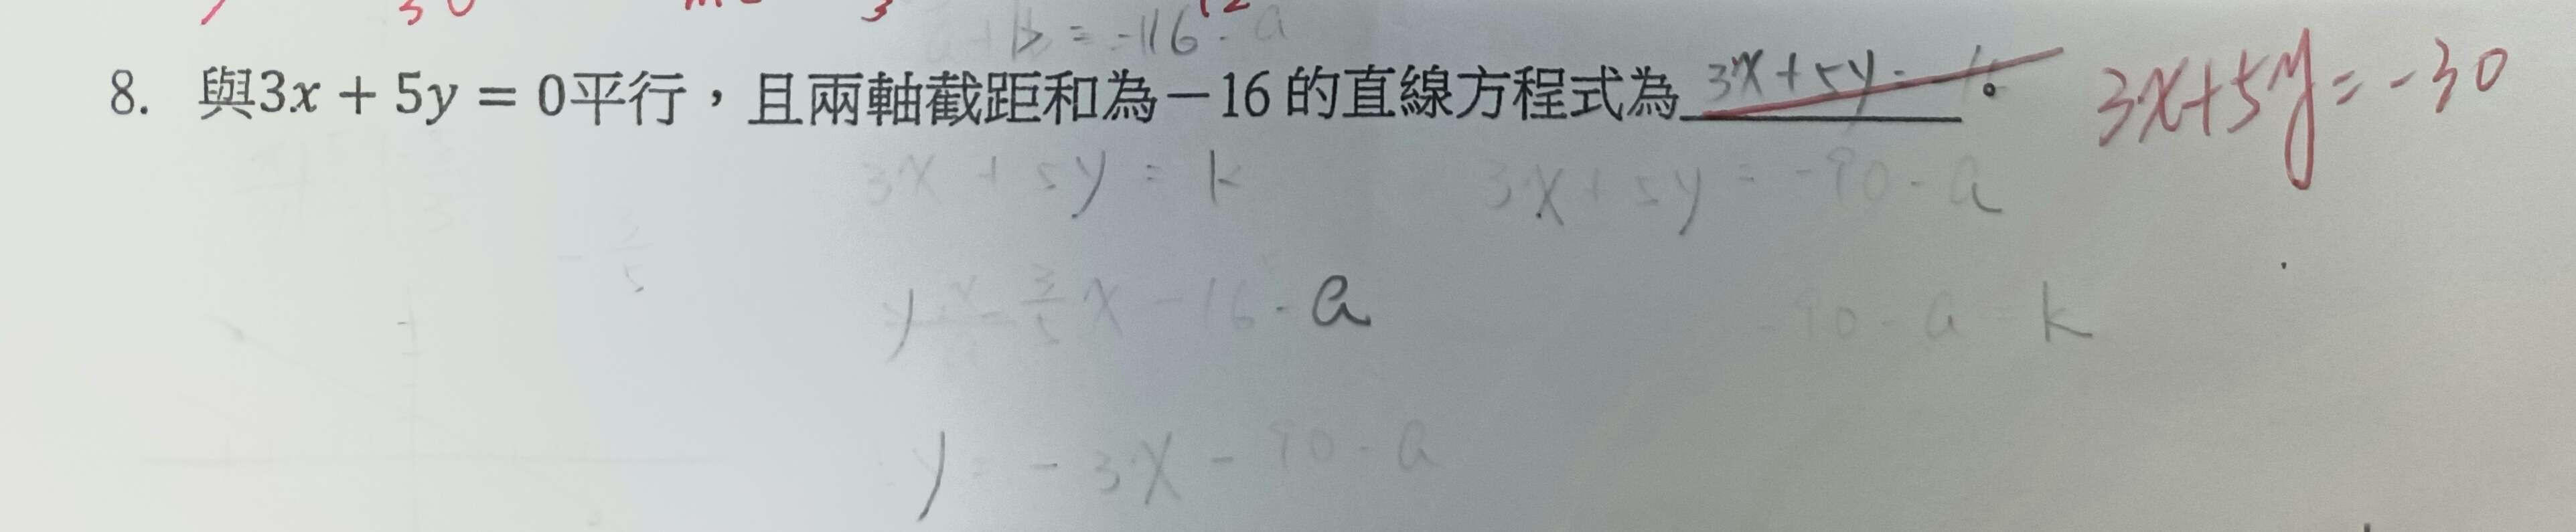 b = -116 - a
8. 與3x + 5y = 0平行，且兩軸截距和為－16 的直線方程式為 3x+5y= 。 3x+5y=-30
3x + 5y = k 3x + 5y = -90 - a
x - 16 - a -90 - a k
y = - 3x - 90 - a